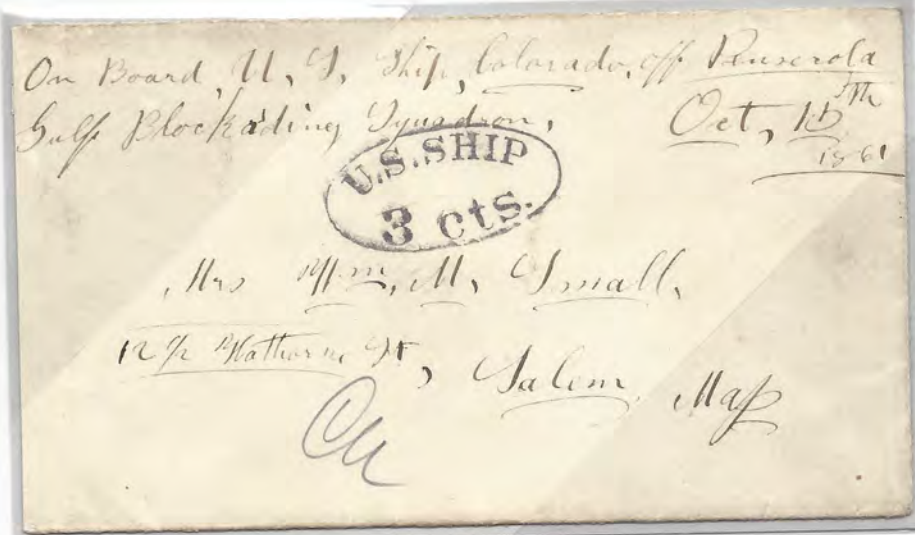 On Board, U, S, Ship, Colorado, off Penserola
Gulf Blockading Squadron, Oct, 15th
1861
U.S. SHIP
3 cts.
Mrs Wm, M, Small,
12 1/2 Hathorne St,
Salem, Mass